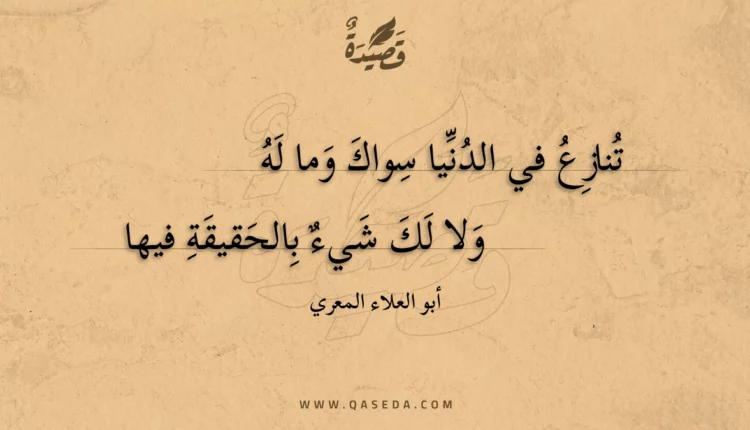 قَصِيدَةٌ
تُنازِعُ في الدُنِّيا سِواكَ وَما لَهُ
وَلا لَكَ شَيءٌ بِالحَقيقَةِ فيها
أبو العلاء المعري
WWW.QASEDA.COM